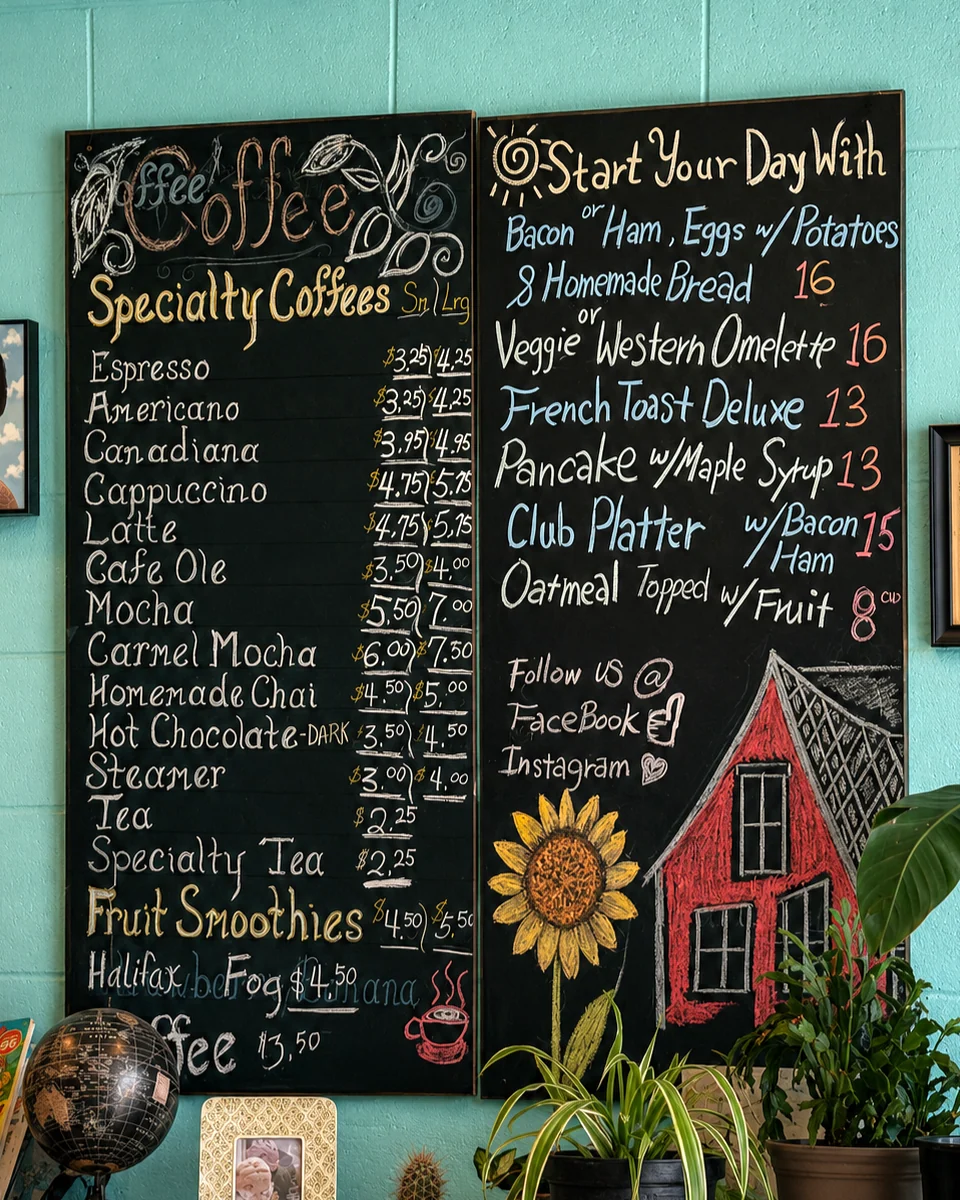 Coffee
Specialty Coffees Sm/Lrg
Espresso $3.25/$4.25
Americano $3.25/$4.25
Canadiana $3.95/$4.95
Cappuccino $4.75/$5.75
Latte $4.75/$5.75
Cafe Ole $3.50/$4.00
Mocha $5.50/7.00
Carmel Mocha $6.00/$7.50
Homemade Chai $4.50/$5.00
Hot Chocolate-DARK $3.50/$4.50
Steamer $3.00/$4.00
Tea $2.25
Specialty Tea $2.25
Fruit Smoothies $4.50/$5.50
Halifax Fog $4.50
ffee $3.50
Start Your Day With
Bacon or Ham, Eggs w/ Potatoes
& Homemade Bread 16
Veggie or Western Omelette 16
French Toast Deluxe 13
Pancake w/Maple Syrup 13
Club Platter w/Bacon 15
Ham
Oatmeal Topped w/ Fruit 8
Follow us @
FaceBook
Instagram